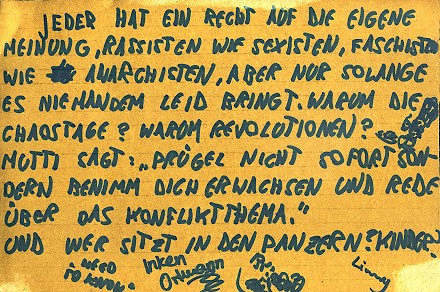 JEDER HAT EIN RECHT AUF DIE EIGENE
MEINUNG, RASSISTEN WIE SEXISTEN, FASCHISTEN
WIE ANARCHISTEN, ABER NUR SOLANGE
ES NIEMANDEM LEID BRINGT. WARUM DIE
CHAOSTAGE? WARUM REVOLUTIONEN?
MUTTI SAGT: „PRÜGEL NICHT SOFORT SON
DERN BENIMM DICH ERWACHSEN UND REDE
ÜBER DAS KONFLIKTTHEMA."
UND WER SITZT IN DEN PANZERN? KINDER?
"NEED TO KNOW" Inken Ortmann